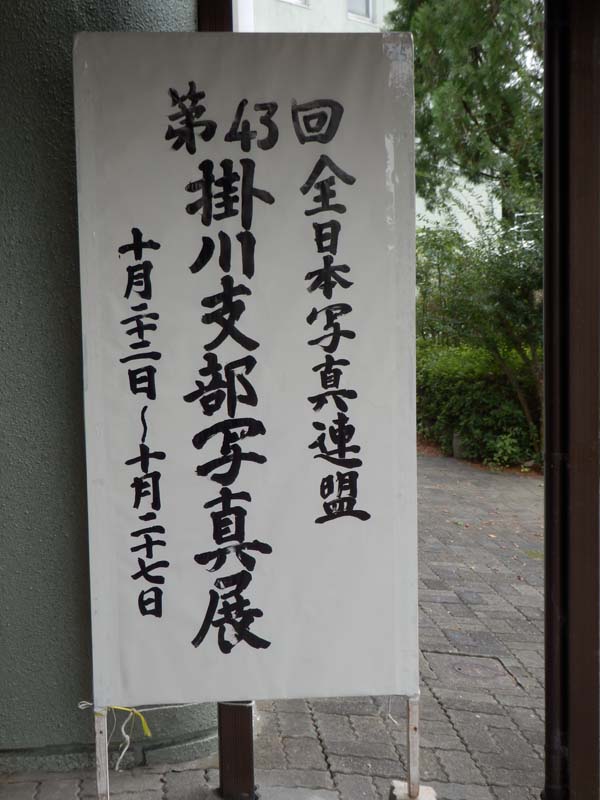 第43回
全日本写真連盟
掛川支部写真展
十月二十二日～十月二十七日